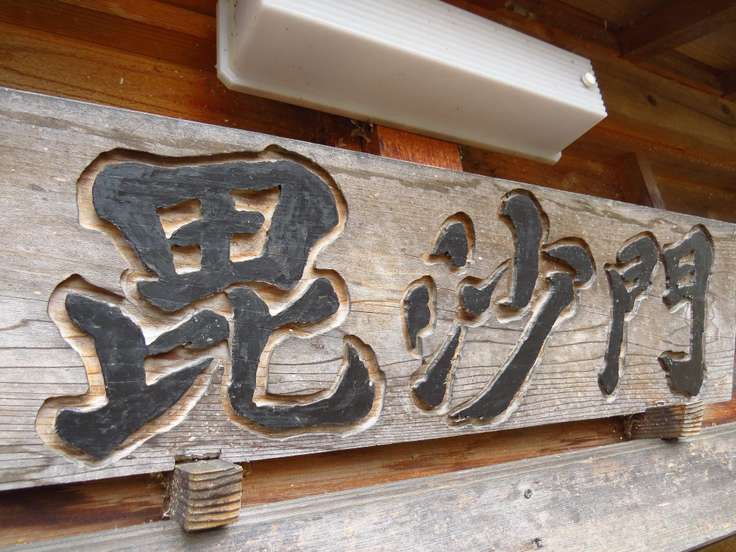 毘沙門